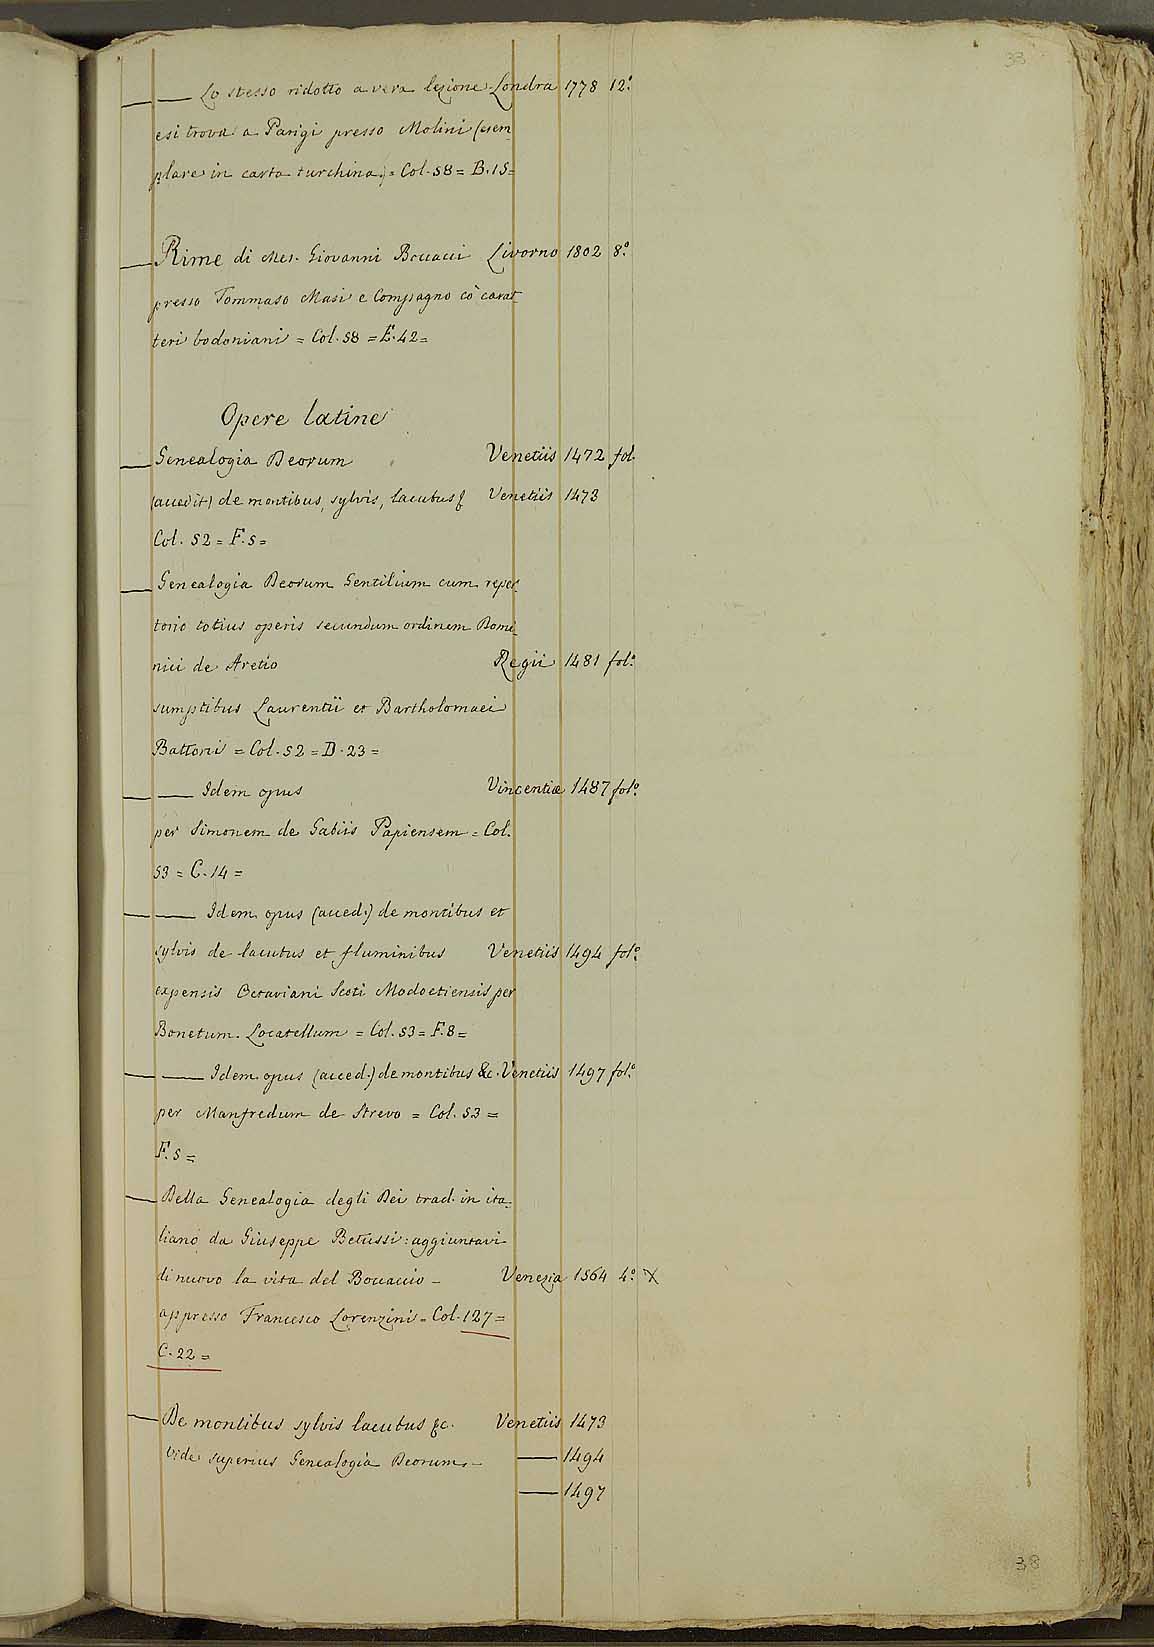 38
—— Lo stesso ridotto a vera lezione Londra 1778 12.º
e si trova a Parigi presso Molini (esem
plare in carta turchina.) = Col. 58 = B. 15 =
— Rime di Mes. Giovanni Boccacci Livorno 1802 8.º
presso Tommaso Masi e Compagno cò carat
teri bodoniani = Col. 58 = E. 42 =
Opere latine
— Genealogia Deorum Venetiis 1472 fol.
(accedit) de montibus, sylvis, lacubus & Venetiis 1473
Col. 52 = F. 5 =
— Genealogia Deorum Gentilium cum reper
torio totius operis secundum ordinem Domi
nici de Aretio Regii 1481 fol.º
sumptibus Laurentii et Bartholomaei
Battorii = Col. 52 = D. 23 =
—— Idem opus Vincentiæ 1487 fol.º
per Simonem de Gabiis Papiensem = Col.
53 = C. 14 =
—— Idem opus (acced.) de montibus et
sylvis de lacubus et fluminibus Venetiis 1494 fol.º
expensis Octaviani Scoti Modoetiensis per
Bonetum Locatellum = Col. 53 = F. 8 =
—— Idem opus (acced.) de montibus &c. Venetiis 1497 fol.º
per Manfredum de Strevo = Col. 53 =
F. 5 =
— Della Genealogia degli Dei trad. in ita=
liano da Giuseppe Betussi: aggiuntavi
di nuovo la vita del Boccaccio — Venezia 1564 4.º X
appresso Francesco Lorenzini = Col. 127 =
C. 22 =
— De montibus sylvis lacubus &c. Venetiis 1473
vide superius Genealogia Deorum — — 1494
— 1497
38